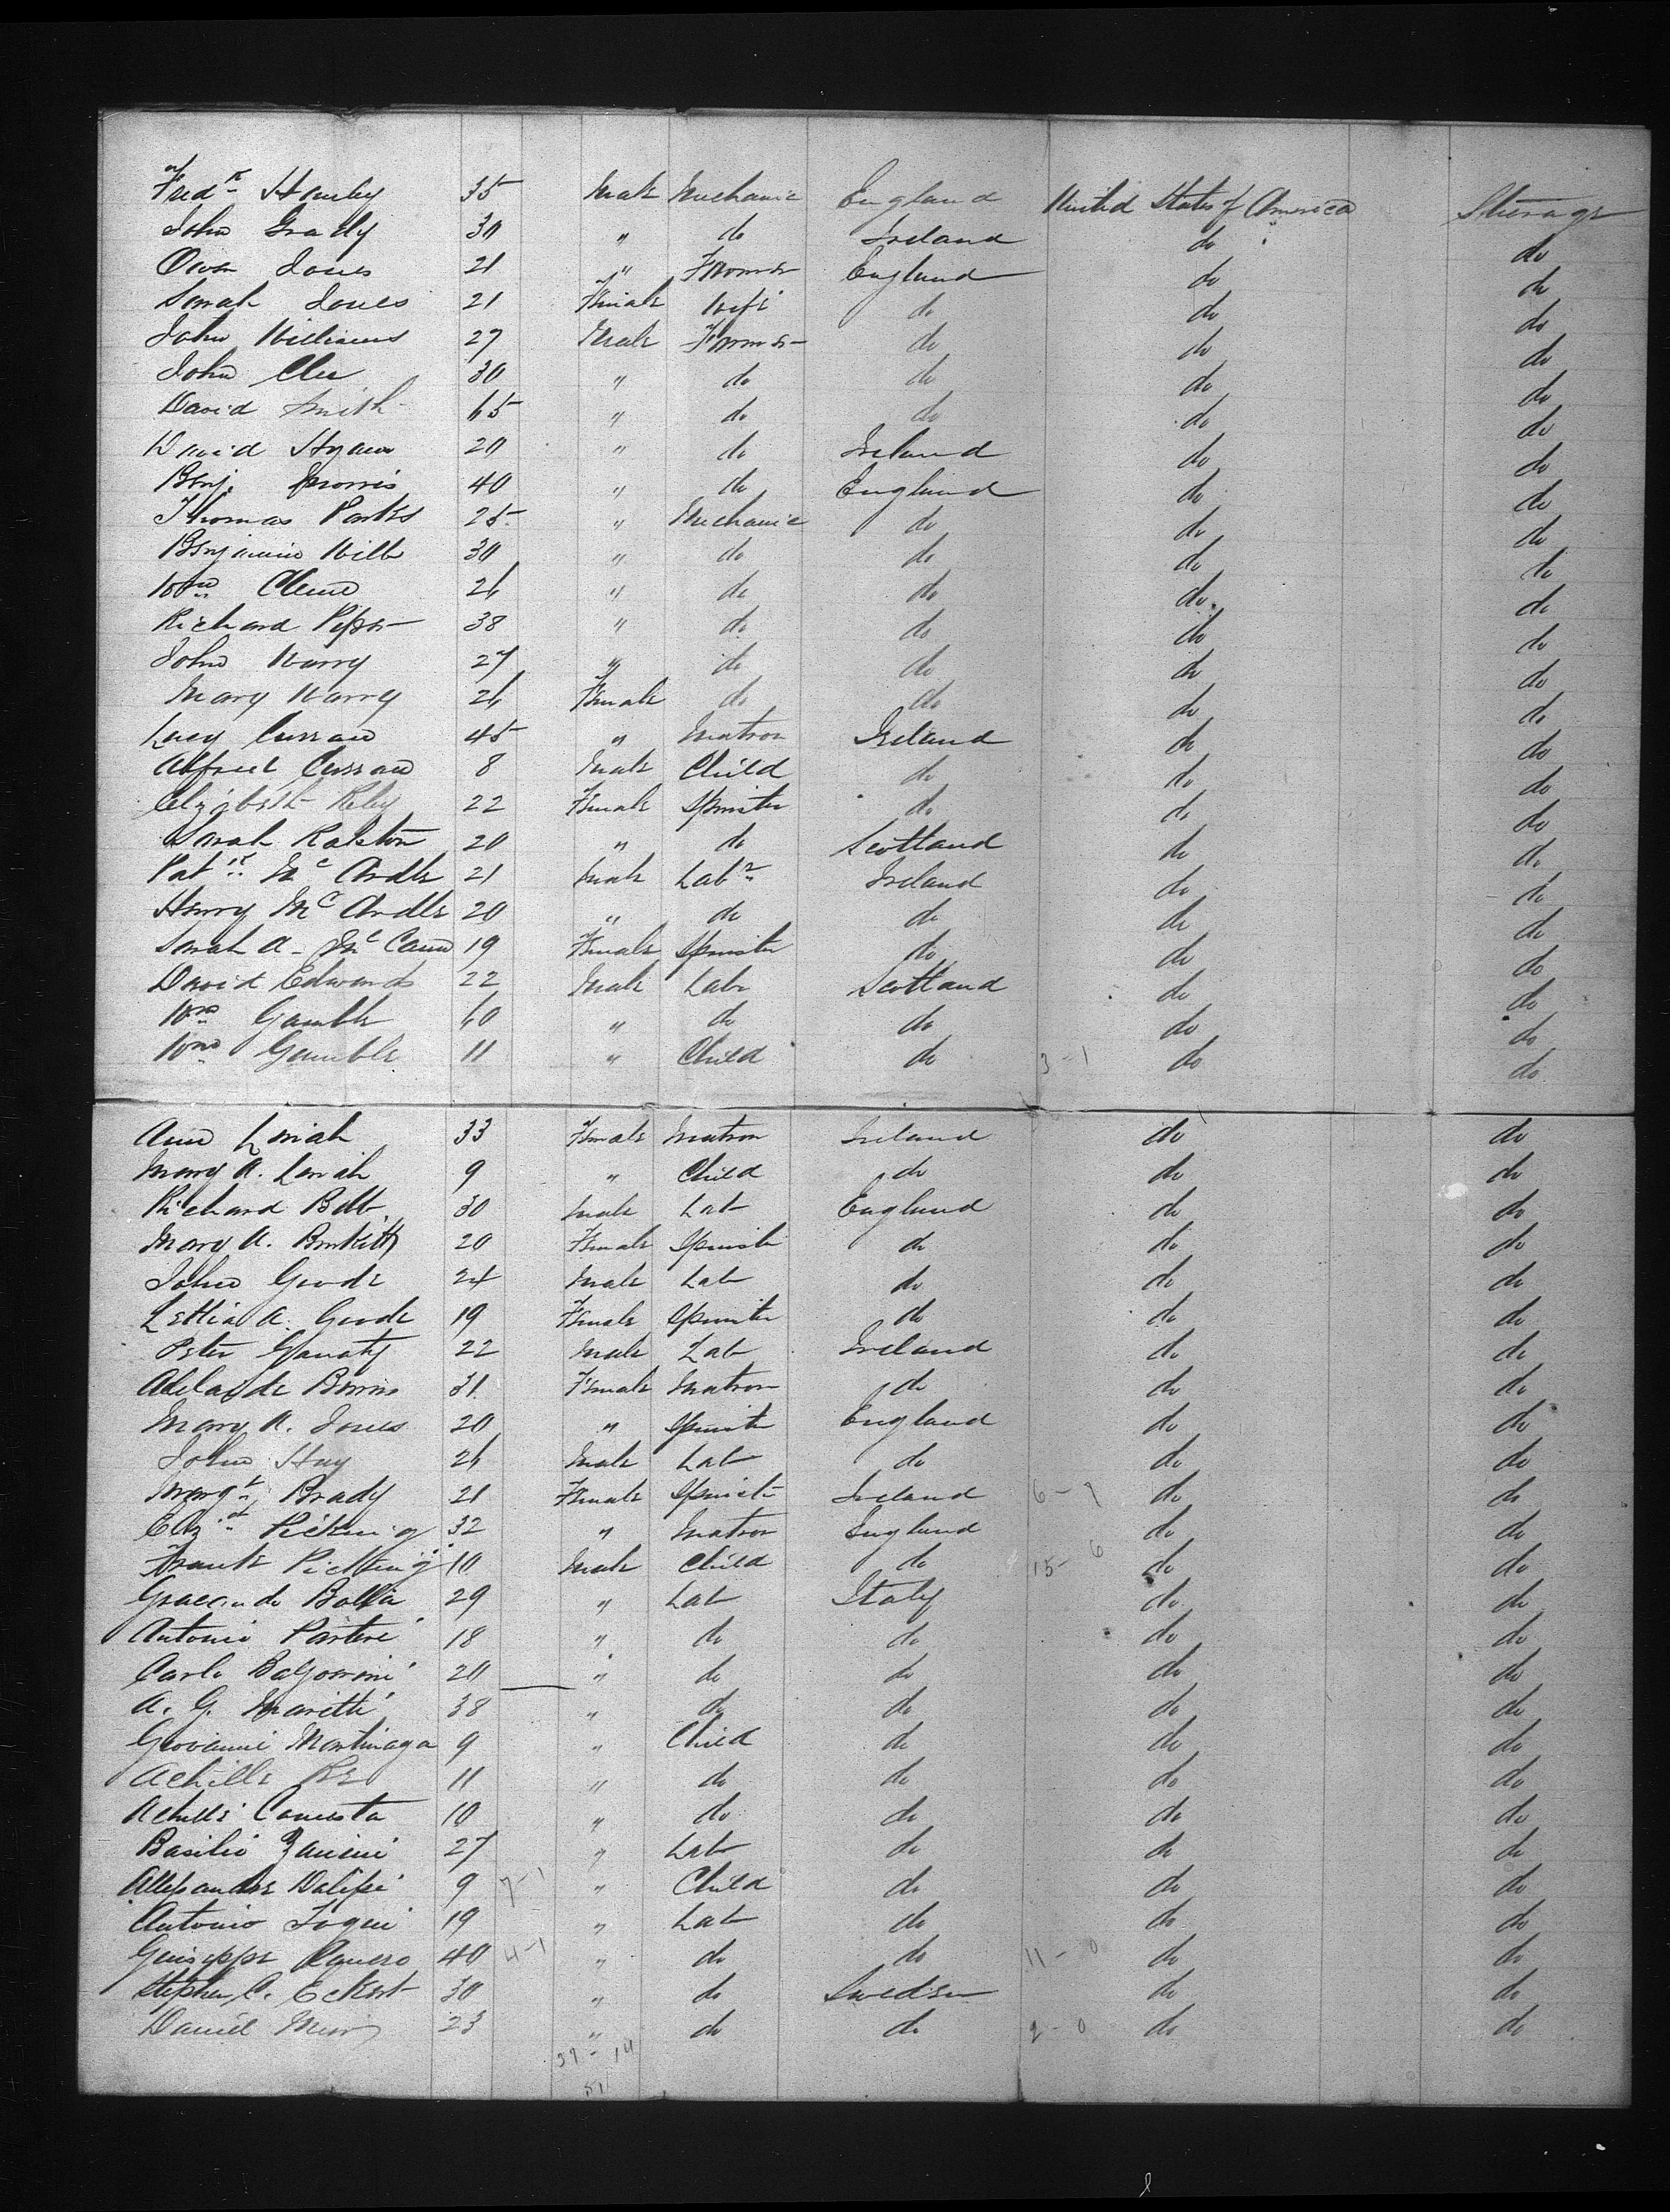 Fredk Hanley 35 Male Mechanic England United States of America Steerage
John Grady 30 " do Ireland do do
Owen Jones 21 " Farmer England do do
Sarah Jones 21 Female Wife do do do
John Williams 27 Male Farmer do do do
John Clee 30 " do do do do
David Smith 65 " do do do do
David Hyam 20 " do Ireland do do
Benj. Morris 40 " do England do do
Thomas Parks 25 " Mechanic do do do
Benjamin Will 30 " do do do do
Wm 26 " do do do do
Richard Piper 38 " do do do do
John Warry 27 " do do do do
Mary Warry 26 Female do do do do
Lucy Curran 45 " Matron Ireland do do
Alfred Curran 8 Male Child do do do
Elizabeth Riley 22 Female Spinster do do do
Sarah Ralston 20 " do Scotland do do
Patk McArdle 21 Male Labr Ireland do do
Henry McArdle 20 " do do do do
Sarah A. McCann 19 Female Spinster do do do
David Edwards 22 Male Labr Scotland do do
Wm Gamble 60 " do do do do
Wm Gamble 11 " Child do 3-1 do do
Ann Loriah 33 Female Matron Ireland do do
Mary A. Loriah 9 " Child do do do
Richard Bebb 30 Male Lab England do do
Mary A. 20 Female Spinster do do do
John Goode 24 Male Lab do do do
Lettia A. Goode 19 Female Spinster do do do
Peter Garraty 22 Male Lab Ireland do do
Adelaide Burns 31 Female Matron do do do
Mary A. Jones 20 " Spinster England do do
John Hay 26 Male Lab do do do
Margt Brady 21 Female Spinster Ireland do do
Elizth Picking 32 " Matron England do do
Frank Picking 10 Male Child do 15-6 do do
29 " Lab Italy do do
Antonio 18 " do do do do
Carlo 20 " do do do do
A. G. 38 " do do do do
Giovanni Martinaga 9 " Child do do do
Achille Re 11 " do do do do
Achille 10 " do do do do
Basilio Zanini 27 " Lab do do do
9 7-1 " Child do do do
Antonio 19 " Lab do do do
Guiseppe 40 4-1 " do do 11-0 do do
Stephen C. Eckert 30 " do Sweden do do
Daniel 23 " do do 2-0 do do
37-14
51